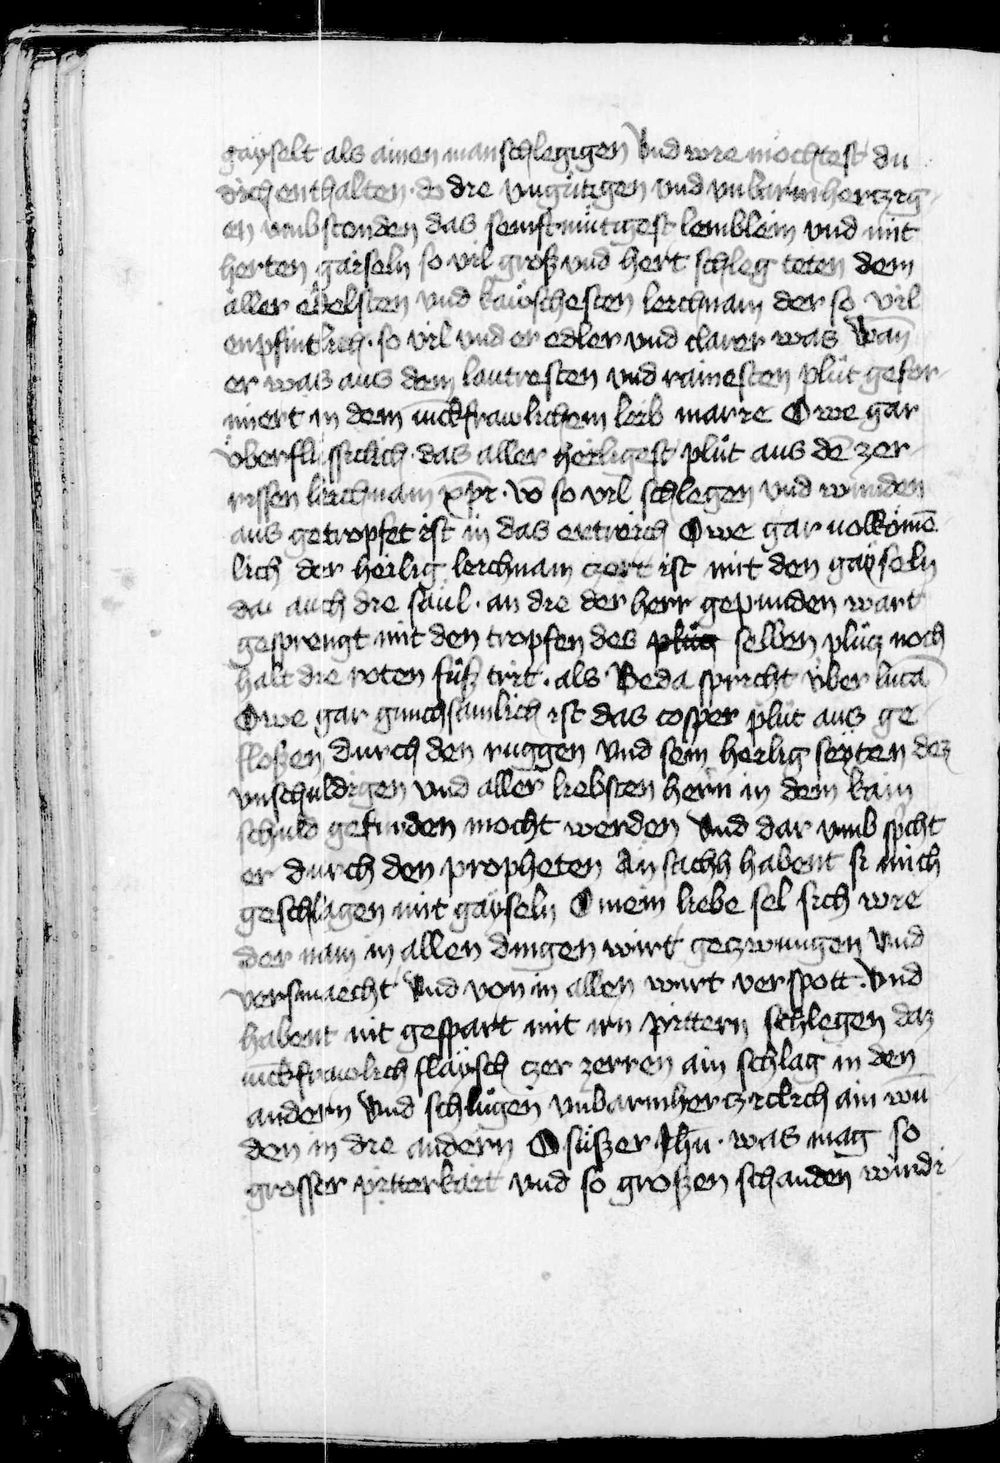 gäyselt als ainen manschlegigen Vnd wie möchtest du
dich enthalten · do die vngütigen vnd vnbarmherczig-
en vmbstenden das senftmütigest lemblein vnd mit
herten gaiseln so vil groß vnd hert schleg teten dem
aller edelsten vnd käuschesten leichnam der so vil
enpfintlich · so vil vnd er edler vnd clarer was Wan̄
er was aus dem lautresten vnd rainesten plüt gefor-
miert in dem iūckfrawlichem leib marie Owe gar
v̈berflüssiclich · das aller heiligest plüt aus dē zer-
rissen leichnam xp̄i · vō so vil schlegen vnd wunden
aus getropfet ist in das ertreich Owe gar volkomē-
lich der heilig leichnam czert ist mit den gäyseln
da auch die saul · an die der herr gepunden wart
gesprengt mit den tropfen des plütz selben plütz noch
halt die roten füß trit · als · Beda spricht v̈ber lucā
Owe gar gnuchsamlich ist das cosper plüt aus ge-
floßen durch den ruggen vnd sein heilig seyten dez
vnschuldigen vnd aller liebsten hern in dem kain
schuld gefunden mocht werden Vnd dar vmb spicht
er durch den propheten An sachh habent si mich
geschlagen mit gäyseln O mein liebe sel sich wie
der nam in allen dingen wirt geczwungen Vnd
versmaecht Vnd von in allen wurt verspott · Vnd
habent nit gespart mit irn pittern schlegen daz
iūckfrawlich fläysch czer zerren ain schlag in den
andern Vnd schlügen vnbarmhercziclich ain wū-
den in die andern O süßer Jhū · was mag so
grosser pitterkait vnd so großen schanden wirdi-